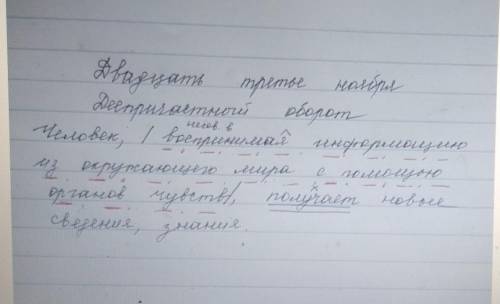 Двадцать третье ноября
Деепричастный оборот
несов. в
Человек, / воспринимая информацию
х
из окружающего мира с помощью
органов чувств/, получает новые
сведения, знания.